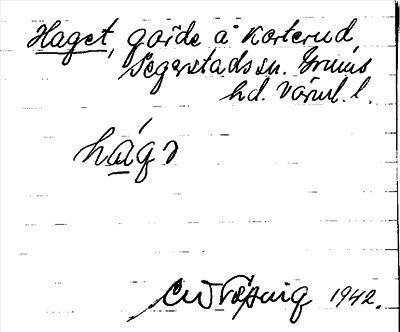 Haget, gärde å Korterud
Segerstads sn. Grums
hd. Värml. l.
hágə
1942.